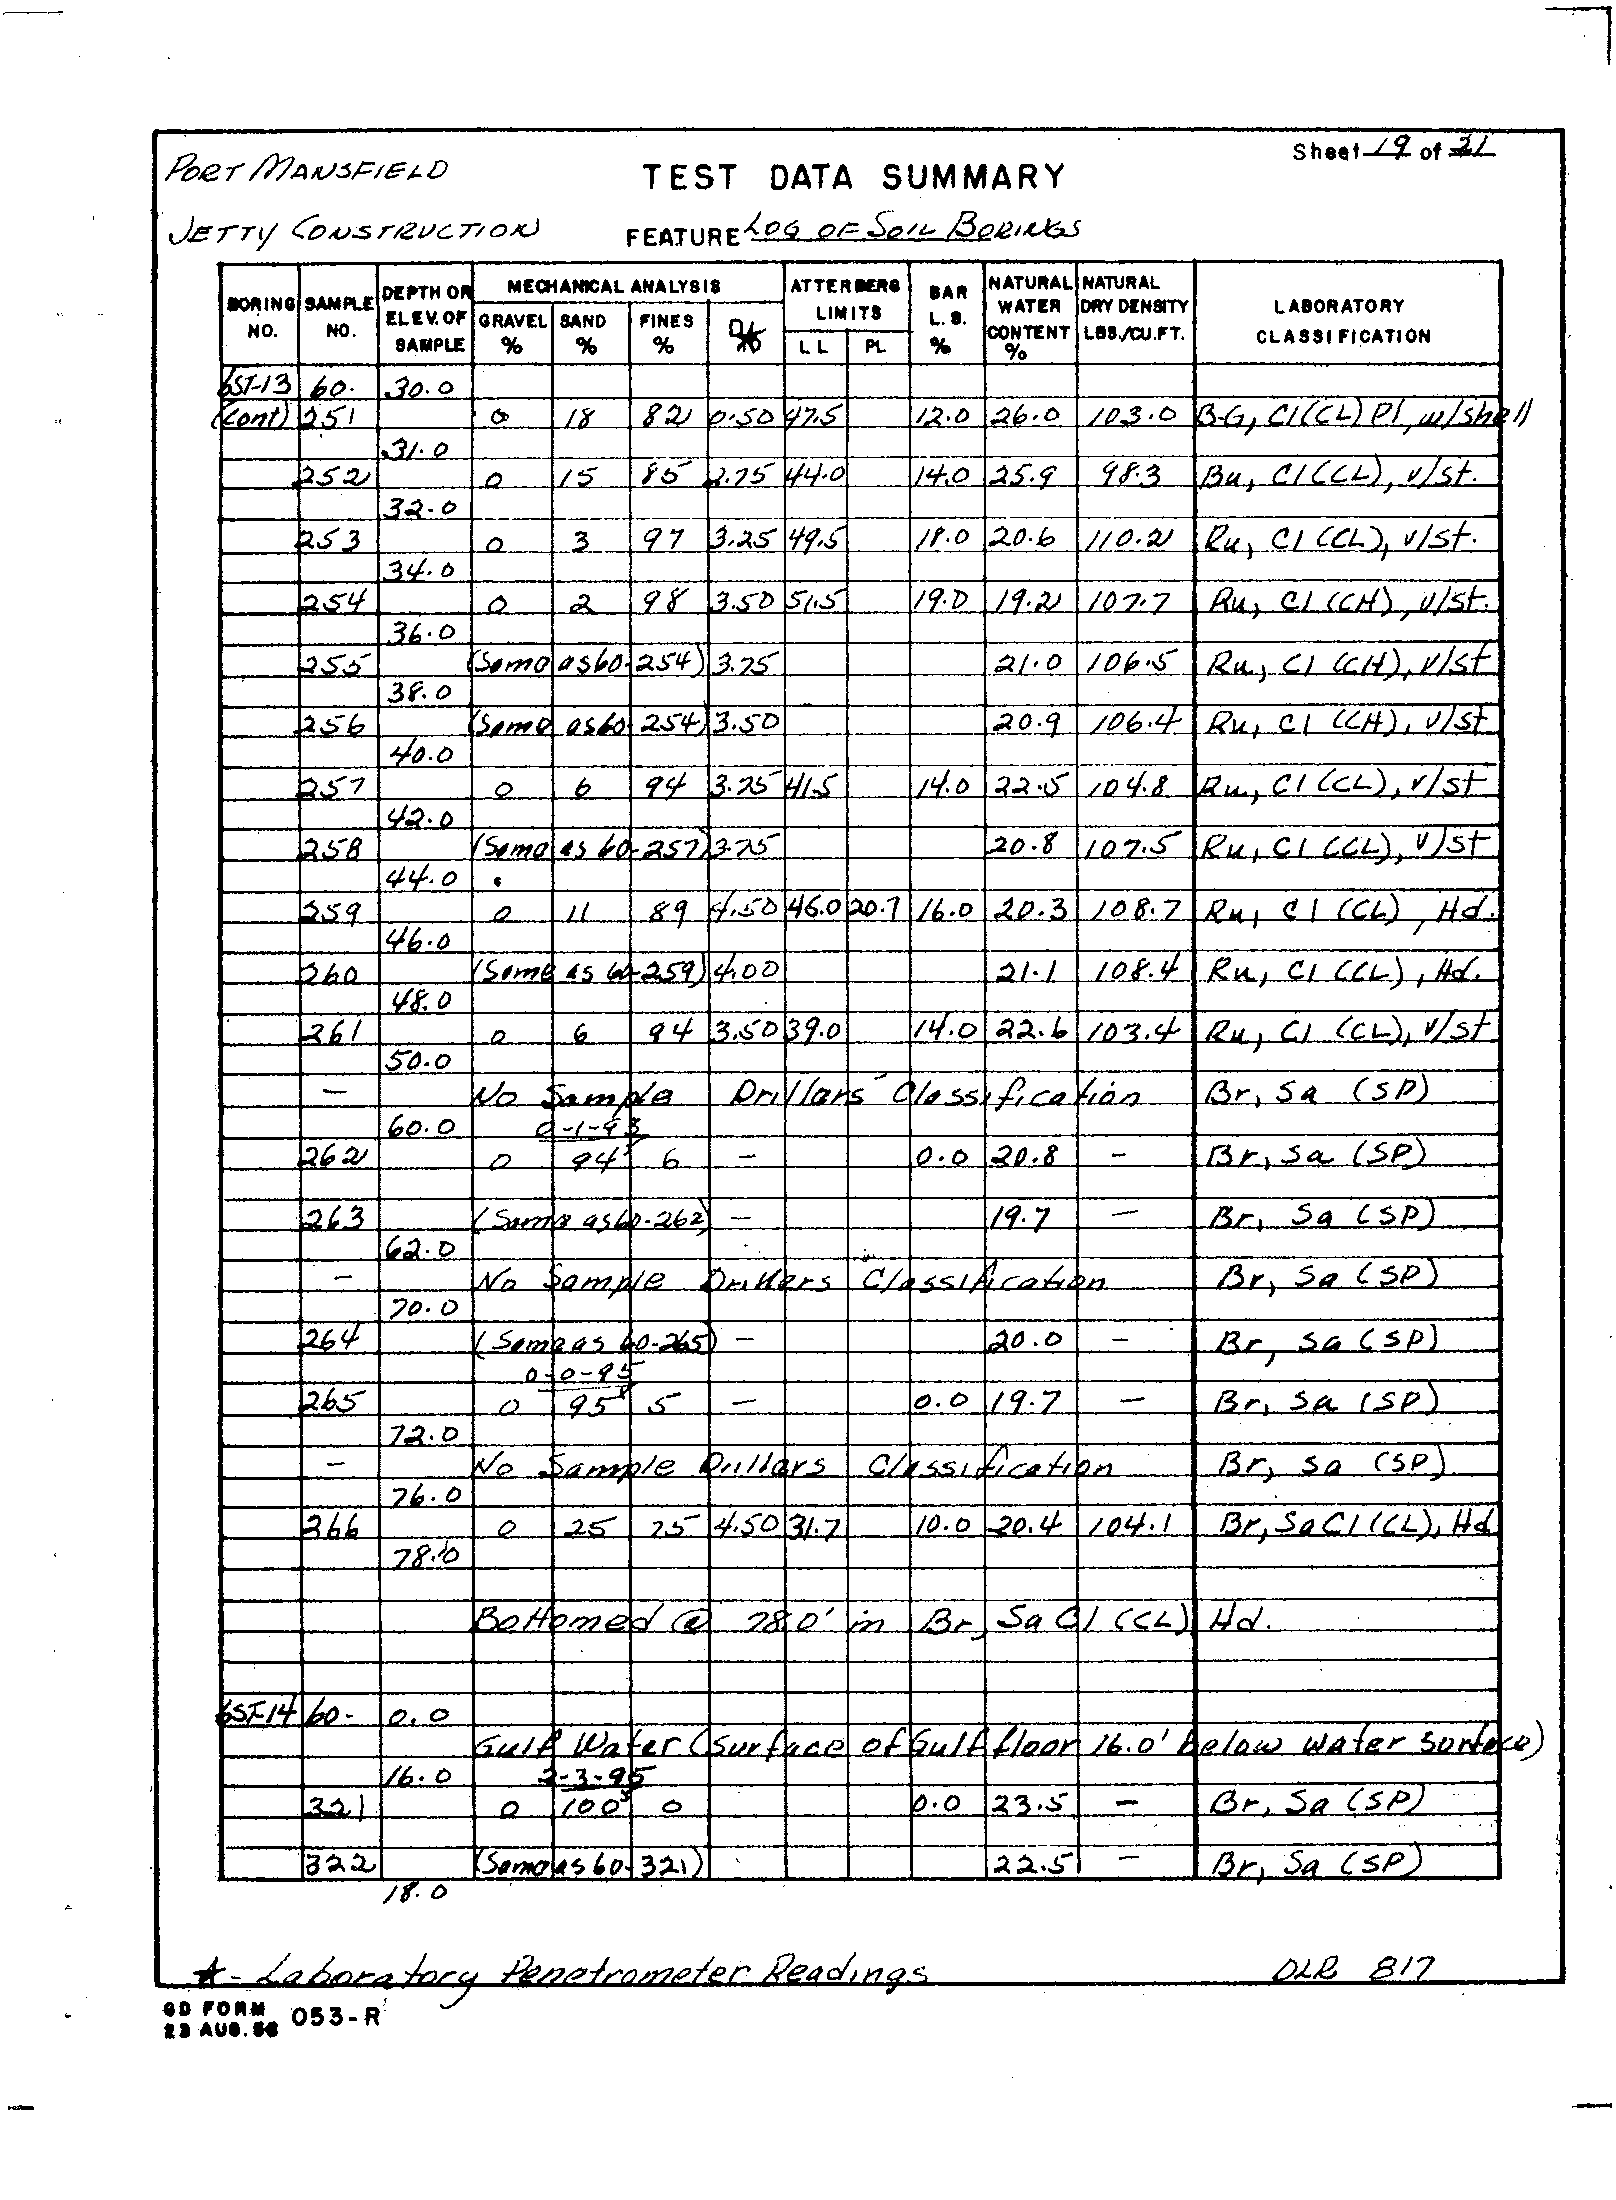 Sheet 19 of 21
PORT MANSFIELD
TEST DATA SUMMARY
JETTY CONSTRUCTION FEATURE LOG OF SOIL BORINGS
BORING NO. SAMPLE NO. DEPTH OR ELEV. OF SAMPLE MECHANICAL ANALYSIS GRAVEL % SAND % FINES % ATTERBERG LIMITS LL PL BAR L.S. % NATURAL WATER CONTENT % NATURAL DRY DENSITY LBS./CU.FT. LABORATORY CLASSIFICATION
6ST-13 60- 30.0
(Cont) 251 0 18 82 0.50 47.5 12.0 26.0 103.0 B-G, Cl(CL) Pl, w/shell
31.0
252 0 15 85 2.75 44.0 14.0 25.9 98.3 Bu, Cl(CL), v/st.
32.0
253 0 3 97 3.25 49.5 18.0 20.6 110.2 Ru, Cl (CL), v/st.
34.0
254 0 2 98 3.50 51.5 19.0 19.2 107.7 Ru, Cl (CH), v/st.
36.0
255 (Same as 60-254) 3.75 21.0 106.5 Ru, Cl (CH), v/st
38.0
256 (Same as 60-254) 3.50 20.9 106.4 Ru, Cl (CH), v/st
40.0
257 0 6 94 3.25 41.5 14.0 22.5 104.8 Ru, Cl (CL), v/st
42.0
258 (Same as 60-257) 3.75 20.8 107.5 Ru, Cl (CL), v/st
44.0
259 0 11 89 4.50 46.0 20.7 16.0 20.3 108.7 Ru, Cl (CL), Hd.
46.0
260 (Same as 60-259) 4.00 21.1 108.4 Ru, Cl (CL), Hd.
48.0
261 0 6 94 3.50 39.0 14.0 22.6 103.4 Ru, Cl (CL), v/st
50.0
— No Sample Drillars Classification Br, Sa (SP)
60.0 0-1-93
262 0 94 6 — 0.0 20.8 — Br, Sa (SP)
263 (Same as 60-262) — 19.7 — Br, Sa (SP)
62.0
— No Sample Drillers Classification Br, Sa (SP)
70.0
264 (Same as 60-265) — 20.0 — Br, Sa (SP)
0-0-95
265 0 95 5 — 0.0 19.7 — Br, Sa (SP)
72.0
— No Sample Drillars Classification Br, Sa (SP)
76.0
266 0 25 75 4.50 31.7 10.0 20.4 104.1 Br, Sa Cl (CL), Hd
78.0
Bottomed @ 78.0' in Br, Sa Cl (CL) Hd.
6ST-14 60- 0.0
Gulf Water (Surface of Gulf floor 16.0' below water surface)
16.0 2-3-95
321 0 100 0 0.0 23.5 — Br, Sa (SP)
322 (Same as 60-321) 22.5 — Br, Sa (SP)
18.0
★ - Laboratory Penetrometer Readings DLR 817
GD FORM 053-R
23 AUG. 56